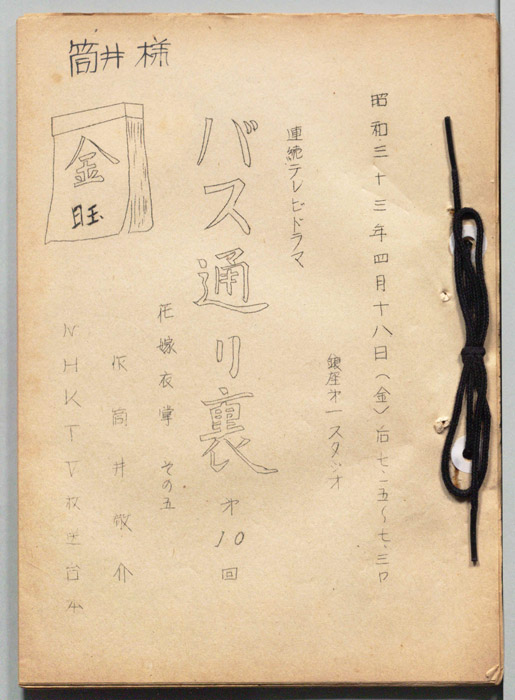 昭和三十三年四月十八日(金)后七、一五〜七、三〇
銀座第一スタジオ
連続テレビドラマ
バス通り裏
第10回
花嫁衣裳 その五
作 筒井敬介
NHKTV放送台本
筒井様
金